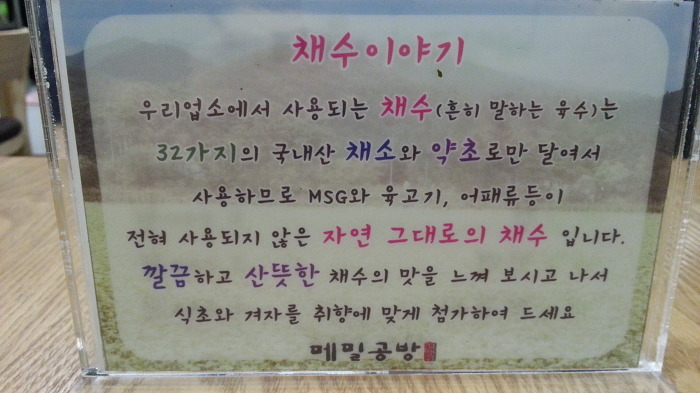 채수이야기
우리업소에서 사용되는 채수(흔히 말하는 육수)는
32가지의 국내산 채소와 약초로만 달여서
사용하므로 MSG와 육고기, 어패류등이
전혀 사용되지 않은 자연 그대로의 채수 입니다.
깔끔하고 산뜻한 채수의 맛을 느껴 보시고 나서
식초와 겨자를 취향에 맞게 첨가하여 드세요
메밀공방